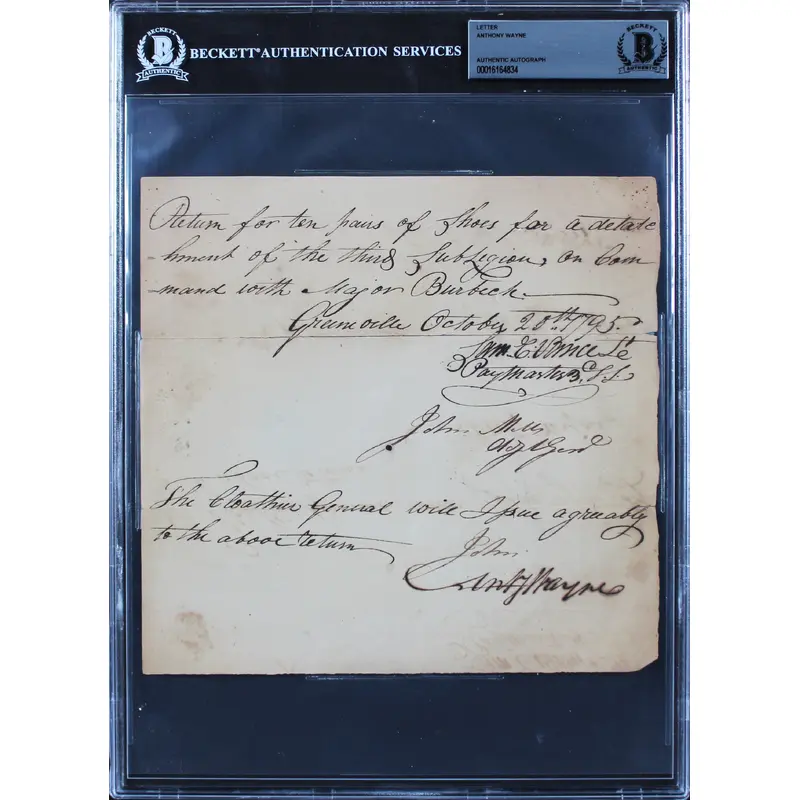 BECKETT
B
AUTHENTIC
BECKETT® AUTHENTICATION SERVICES
LETTER
ANTHONY WAYNE
AUTHENTIC AUTOGRAPH
00016164834
BECKETT
B
AUTHENTIC
Return for ten pairs of Shoes for a detatc
hment of the third SubLegion, on Com
mand with Major Burbeck.
Greenville October 20th 1795.
Paymaster 3d S.L.
John Mills
Adjt Genl
The Cloathier General will Issue agreeably
to the above return
John
Anty Wayne